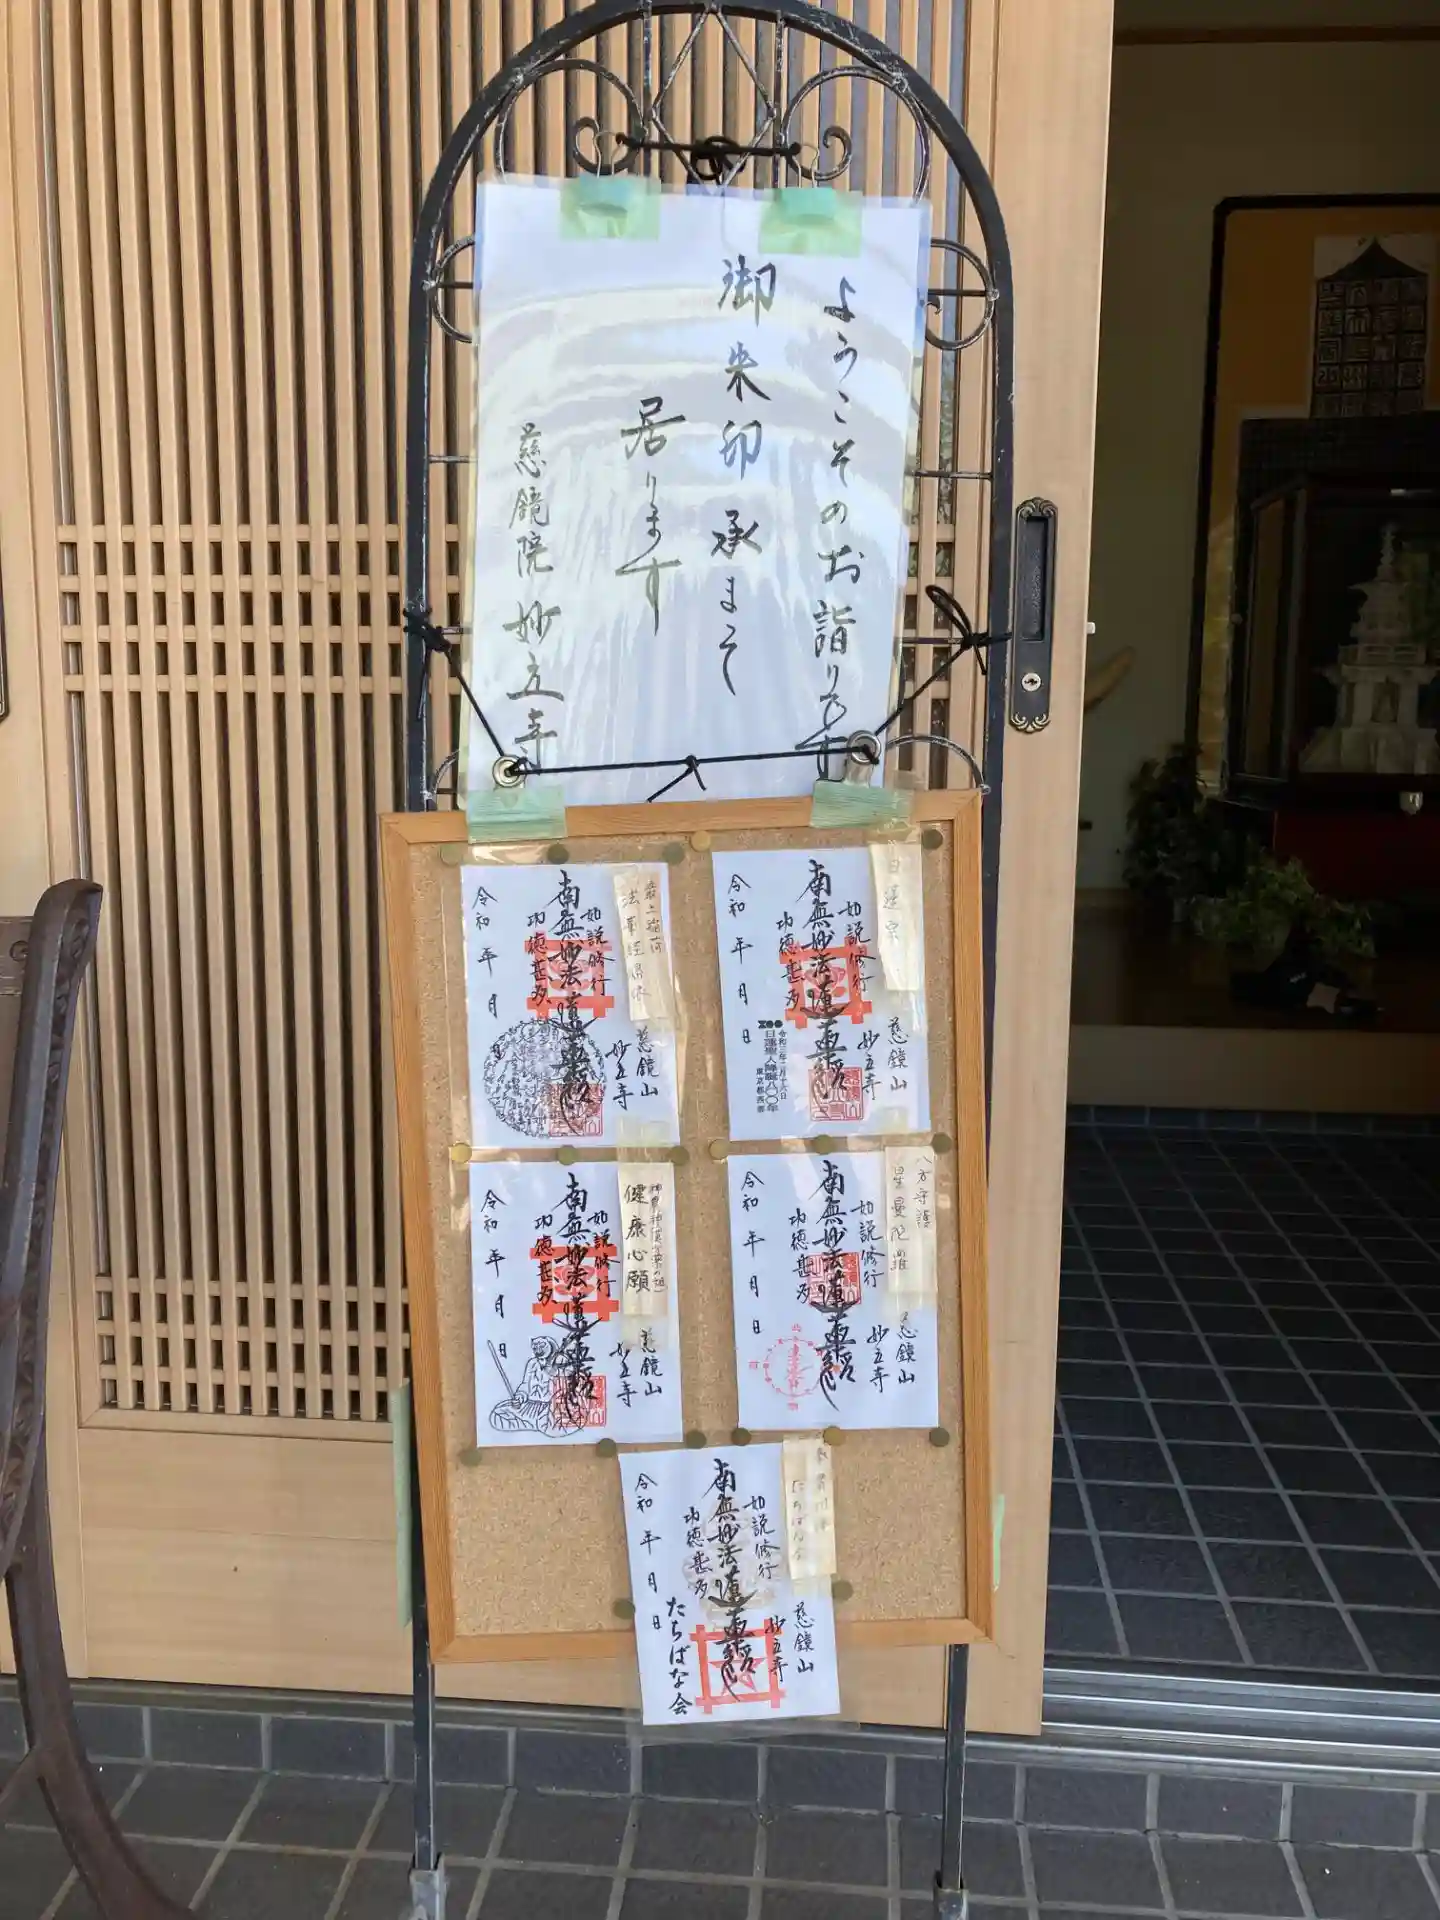 ようこそのお詣りです
御朱印承まって
居ります
慈鏡院 妙立寺
最上稲荷
法華経
慈鏡山
妙立寺
如説修行
南無妙法蓮華経
功徳甚多
令和 年 月
日蓮宗
慈鏡山
妙立寺
如説修行
南無妙法蓮華経
功徳甚多
令和三年二月十六日
日蓮聖人降誕八〇〇年
令和 年 月 日
健康心願
慈鏡山
妙立寺
如説修行
南無妙法蓮華経
功徳甚多
令和 年 月 日
八方守護
星曼陀羅
慈鏡山
妙立寺
如説修行
南無妙法蓮華経
功徳甚多
令和 年 月 日
たちばな会
慈鏡山
妙立寺
如説修行
南無妙法蓮華経
功徳甚多
たちばな会
令和 年 月 日